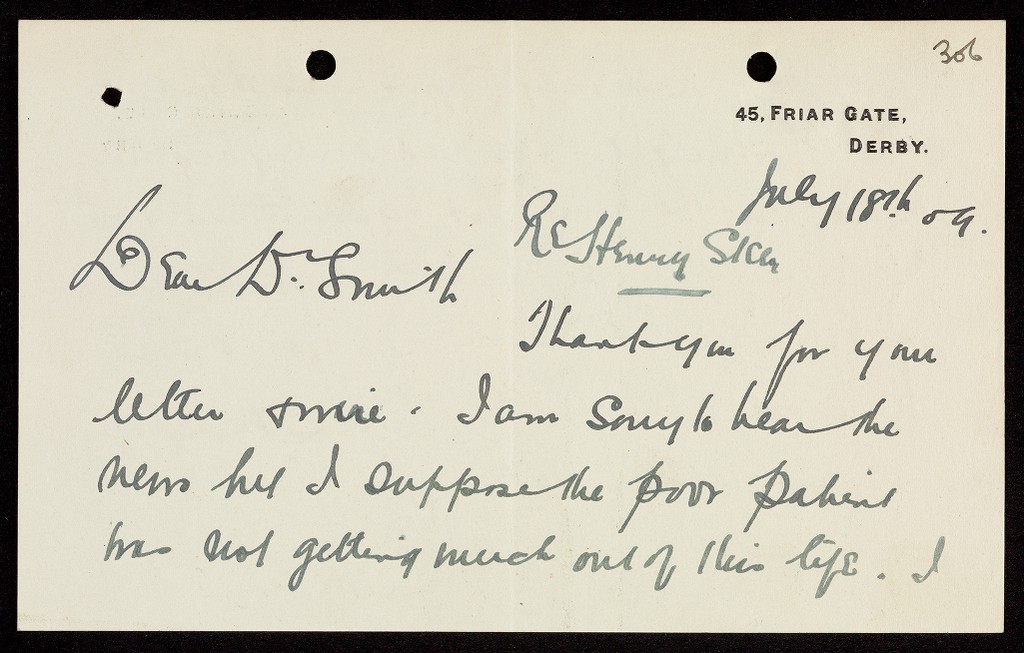 306
45, FRIAR GATE,
DERBY.
July 18th 09.
Dear Dr. Smith
Re Henry
Thank you for your
letter & wire. I am sorry to hear the
news but I suppose the poor patient
was not getting much out of this life. I